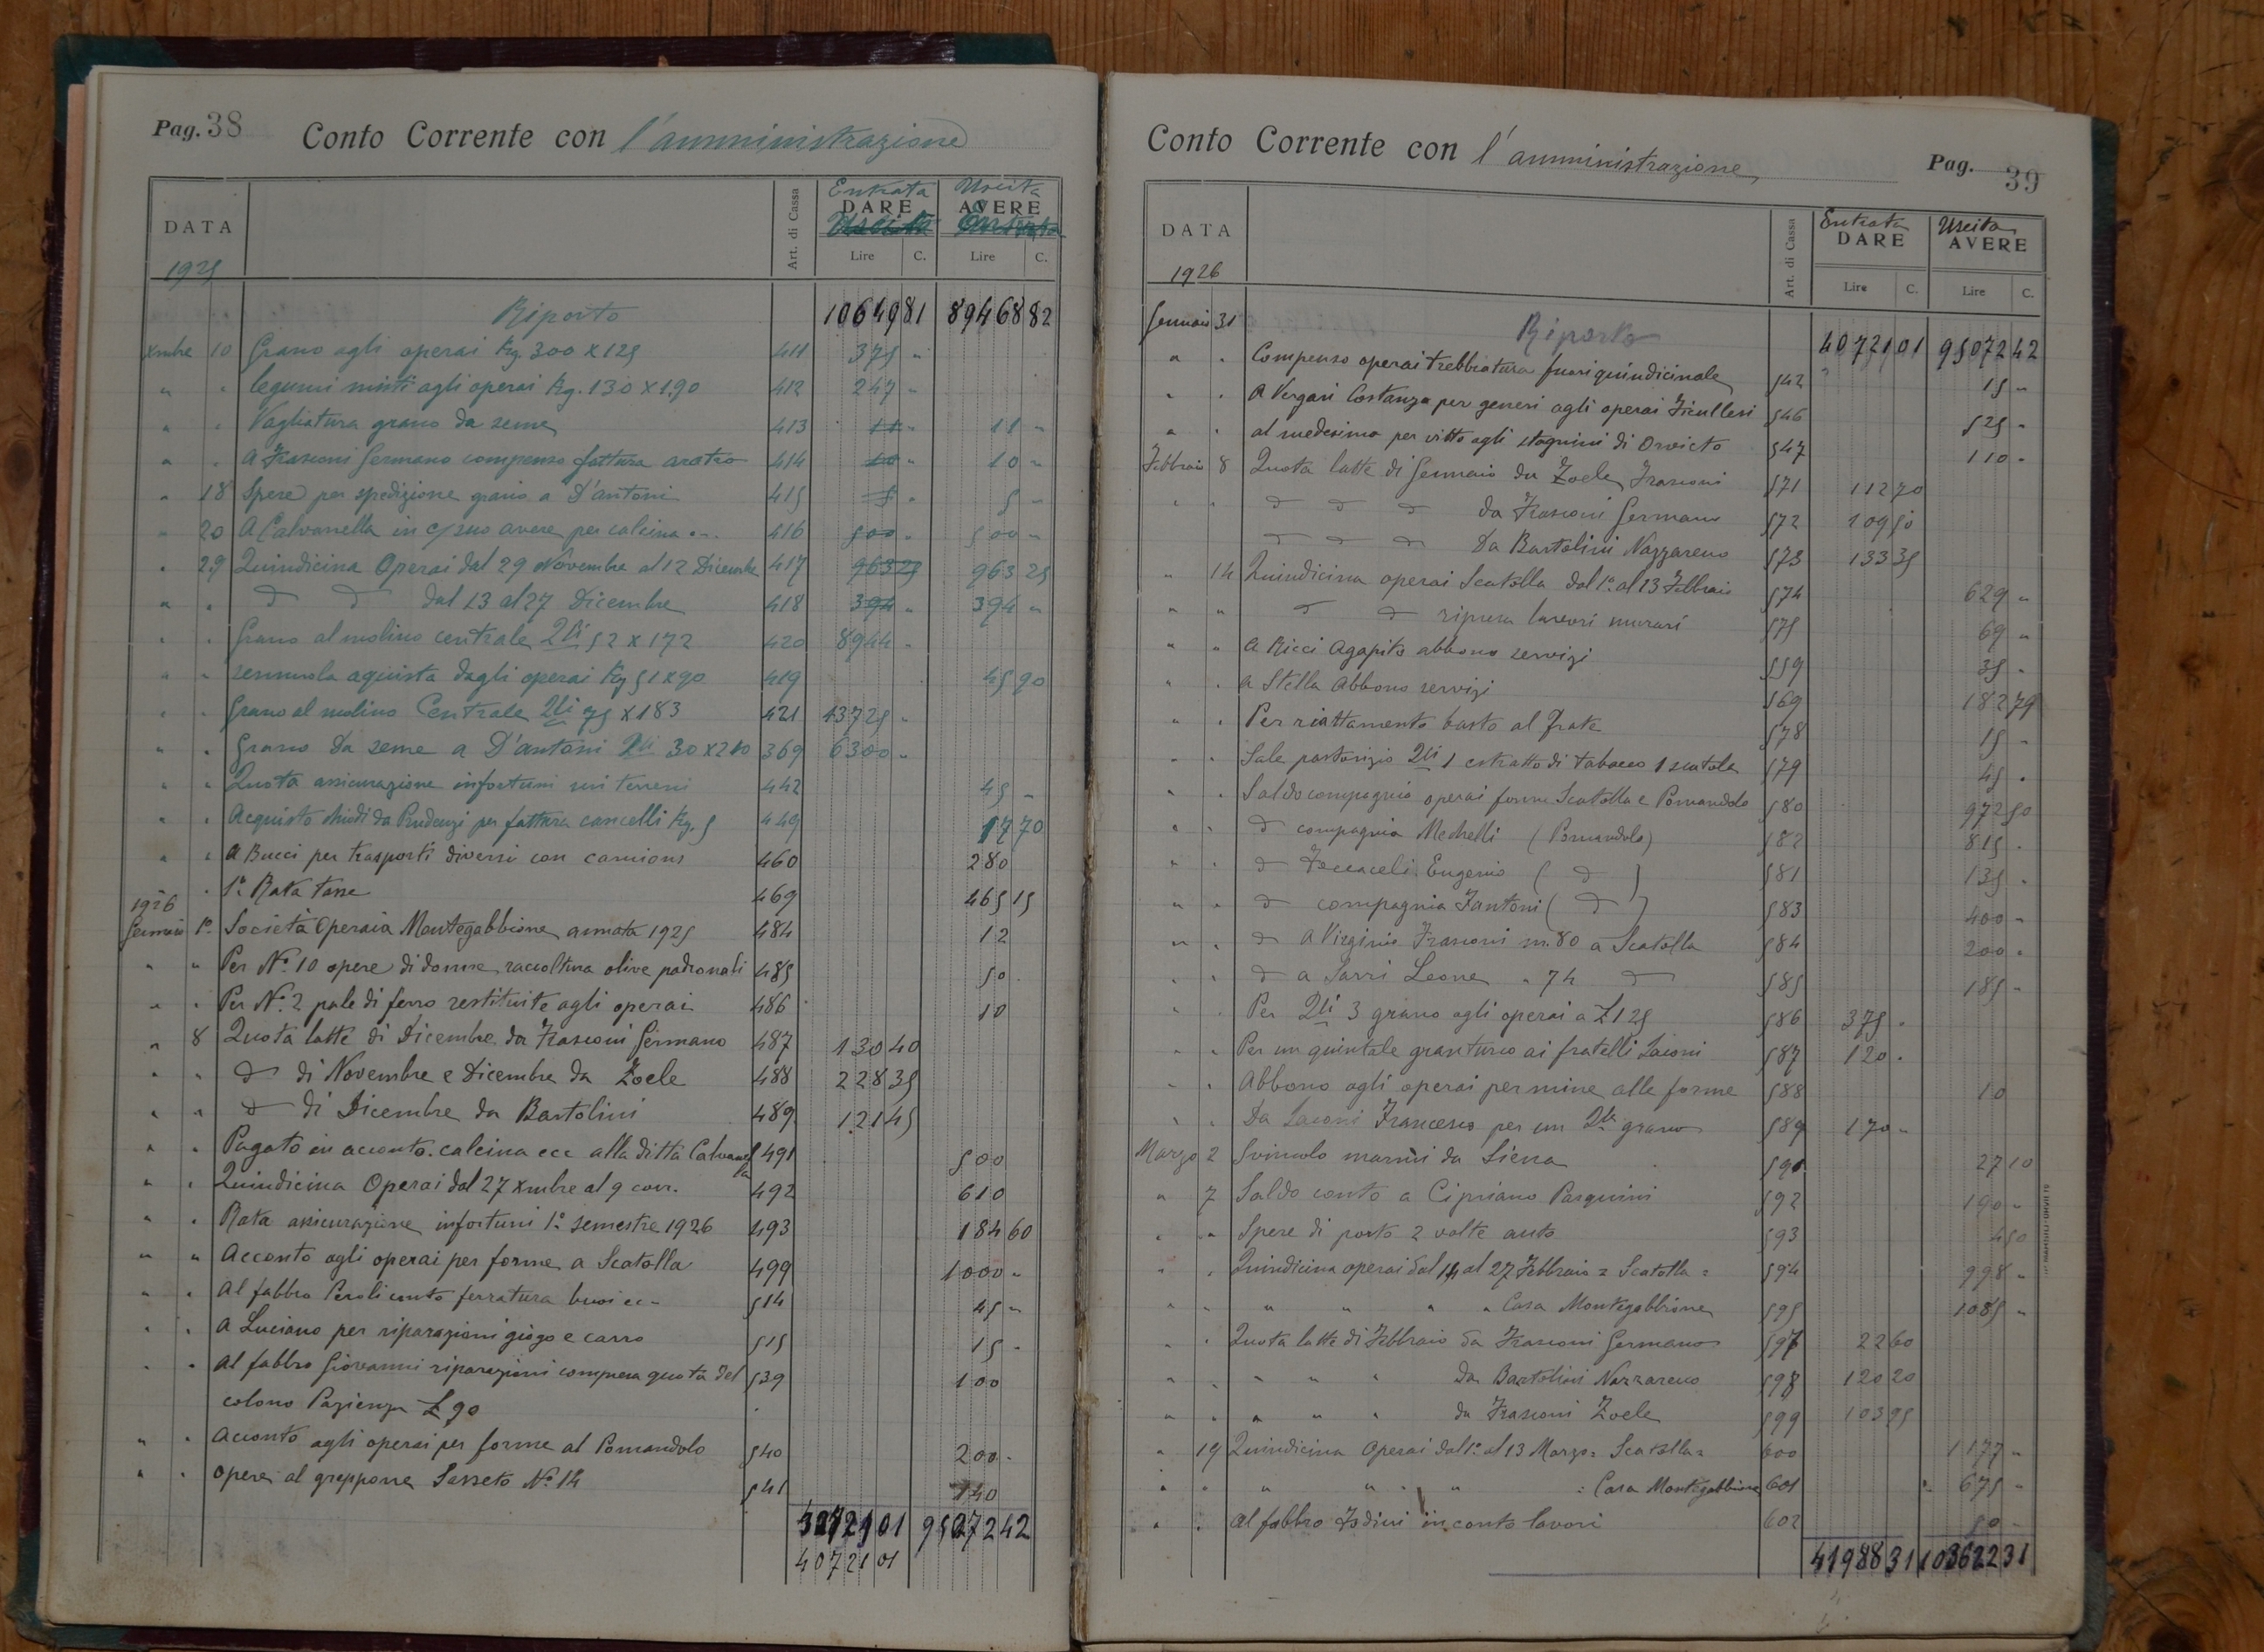 Pag. 38 Conto Corrente con l'amministrazione
DATA Art. di Cassa Entrata DARE Uscita AVERE
Lire C. Lire C.
1925
Riporto 10649 81 89468 82
Xmbre 10 Grano agli operai Kg. 300 x 125 411 375 "
" " legumi misti agli operai Kg. 130 x 1.90 412 247 "
" " Vagliatura grano da seme 413 11 " 11 "
" " A Frasconi Germano compenso fattura aratro 414 10 " 10 "
" 18 Spese per spedizione grano a D'antoni 415 5 " 5 "
" 20 A Calvanella in c/ suo avere per calcina 416 500 " 500 "
" 29 Quindicina Operai dal 29 Novembre al 12 Dicembre 417 963 25 963 25
" " d d dal 13 al 27 Dicembre 418 394 " 394 "
" " Grano al molino centrale Qli 52 x 172 420 8944 "
" " semmola aquista dagli operai Kg 51 x 90 419 45 90
" " Grano al molino Centrale Qli 75 x 183 421 13725 "
" " Grano da seme a D'antoni Qli 30 x 210 369 6300 "
" " Quota assicurazione infortuni sui terreni 442 45 "
" " Acquisto chiodi da Prudenzi per fattura cancelli Kg. 5 449 17 70
" " A Bucci per trasporti diversi con camions 460 280
" 1a Rata tasse 469 465 15
1926
Gennaio 1o Società Operaia Montegabbione annata 1925 484 12
" " Per No. 10 opere di donne raccoltura olive padronali 485 50
" " Per No. 2 pale di ferro restituite agli operai 486 10
" 8 Quota latte di Dicembre da Frasconi Germano 487 130 40
" " d di Novembre e Dicembre da Zoele 488 228 35
" " d di Dicembre da Bartolini 489 121 45
" " Pagato in acconto calcina ecc alla ditta Calvanella 491 500
" " Quindicina Operai dal 27 Xmbre al 9 corr. 492 610
" " Rata assicurazione infortuni 1o semestre 1926 493 184 60
" " Acconto agli operai per forme a Scatolla 499 1000 "
" " Al fabbro ferratura buoi ec 514 45 "
" " A Luciano per riparazioni giogo e carro 515 15 "
" " Al fabbro Giovanni riparazioni compresa quota del 539 100
colono Pazienza £ 90
" " Acconto agli operai per forme al Pomandolo 540 200 "
" " opere al greppone Sasseto No. 14 541 140
95072 42
40721 01
Conto Corrente con l'amministrazione Pag. 39
DATA Art. di Cassa Entrata DARE Uscita AVERE
Lire C. Lire C.
1926
Gennaio 31 Riporto 40721 01 95072 42
" " Compenso operai trebbiatura fuori quindicinale 542 15 "
" " A Vergari Costanza per generi agli operai Ficullesi 546 525 "
" " al medesimo per vitto agli stagnini di Orvieto 547 110 "
Febbraio 8 Quota latte di Gennaio da Zoele Frasconi 571 112 70
" " d d d da Frasconi Germano 572 109 50
d d d Da Bartolini Nazzareno 573 133 35
" 14 Quindicina operai Scatolla dal 1o al 13 Febbraio 574 629 "
" " d d ripresa lavori murari 575 69 "
" " A Ricci Agapito abbono servizi 559 35 "
" " A Stella Abbono servizi 569 182 79
" " Per riattamento basto al Frate 578 15 "
" " Sale pastorizio Qli 1 estratto di tabacco 1 scatola 579 45 "
" " Saldo compagnia operai forme Scatolla e Pomandolo 580 972 50
" " d compagnia Mechelli (Pomandolo) 582 815 "
" " d Ceccaceli Eugenio ( d ) 581 135 "
" " d compagnia Fantoni ( d ) 583 400 "
" " d A Virginio Frasconi m. 80 a Scatolla 584 200 "
" " d a Sarri Leone " 74 d 585 185 "
" " Per Qli 3 grano agli operai a £ 125 586 375 "
" " Per un quintale granturco ai fratelli Laconi 587 120 "
" " Abbono agli operai per mine alle forme 588 10
" " Da Laconi Francesco per un Qle grano 589 170 "
Marzo 2 Svincolo marmi da Siena 591 27 10
" 7 Saldo conto a Cipriano Pasquini 592 190 "
" " Spese di posto 2 volte auto 593 4 50
" " Quindicina operai dal 14 al 27 Febbraio = Scatolla = 594 998 "
" " " " " " Casa Montegabbione 595 1085 "
" Quota latte di Febbraio da Frasconi Germano 597 22 60
" " " " " Da Bartolini Nazzareno 598 120 20
" " " " " da Frasconi Zoele 599 103 95
" 19 Quindicina Operai dal 1o al 13 Marzo = Scatolla = 600 1177 "
" " " " " : Casa Montegabbione 601 675 "
" " Al fabbro Fodini in conto lavori 602 50 "
41988 31 103622 31